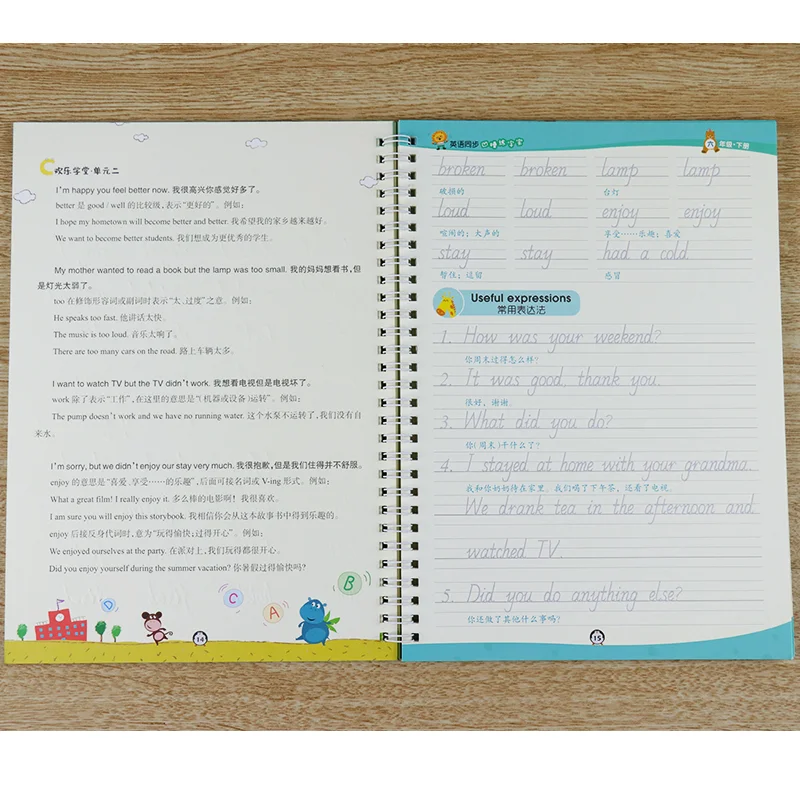 欢乐学堂·单元二
I'm happy you feel better now. 我很高兴你感觉好多了。
better 是 good / well 的比较级,表示“更好的”。例如:
I hope my hometown will become better and better. 我希望我的家乡越来越好。
We want to become better students. 我们想成为更优秀的学生。
My mother wanted to read a book but the lamp was too small. 我的妈妈想看书,但
是灯光太弱了。
too 在修饰形容词或副词时表示“太、过度”之意。例如:
He speaks too fast. 他讲话太快。
The music is too loud. 音乐太响了。
There are too many cars on the road. 路上车辆太多。
I want to watch TV but the TV didn't work. 我想看电视但是电视坏了。
work 除了表示“工作”,在这里的意思是“(机器或设备)运转”。例如:
The pump doesn't work and we have no running water. 这个水泵不运转了,我们没有自
来水。
I'm sorry, but we didn't enjoy our stay very much. 我很抱歉,但是我们住得并不舒服。
enjoy 的意思是“喜爱、享受……的乐趣”,后面可接名词或 V-ing 形式。例如:
What a great film! I really enjoy it. 多么棒的电影啊！我很喜欢。
I am sure you will enjoy this storybook. 我相信你会从这本故事书中得到乐趣的。
enjoy 后接反身代词时,意为“玩得愉快;过得开心”。例如:
We enjoyed ourselves at the party. 在派对上,我们玩得都很开心。
Did you enjoy yourself during the summer vacation? 你暑假过得愉快吗?
D C A B
14
英语同步凹槽练字宝
六年级·下册
broken broken lamp lamp
破损的 台灯
loud loud enjoy enjoy
喧闹的；大声的 享受……乐趣；喜爱
stay stay had a cold
暂住；逗留 感冒
Useful expressions
常用表达法
1. How was your weekend?
你周末过得怎么样?
2. It was good, thank you.
很好，谢谢。
3. What did you do?
你(周末)干什么了?
4. I stayed at home with your grandma.
我和你奶奶待在家里。我们喝了下午茶，还看了电视。
We drank tea in the afternoon and
watched TV.
5. Did you do anything else?
你还做了其他什么事吗?
15